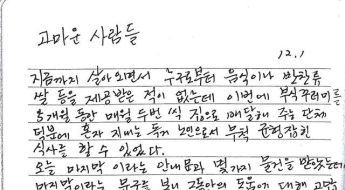 고마운 사람들
12.1
지금까지 살아오면서 누구로부터 음식이나 반찬류
쌀 등을 제공받은 적이 없는데 이번에 부식꾸러미를
개월동안 매월 두번 씩 집으로 배달해 주는 단체
덕분에 혼자 지내는 독거 노인으로서 무척 균형잡힌
식사를 할 수 있었다.
오늘 마지막 이라는 안내문과 몇가지 물건을 받았는데
마지막이라는 문구를 보니 그동안의 도움에 대해 고맙